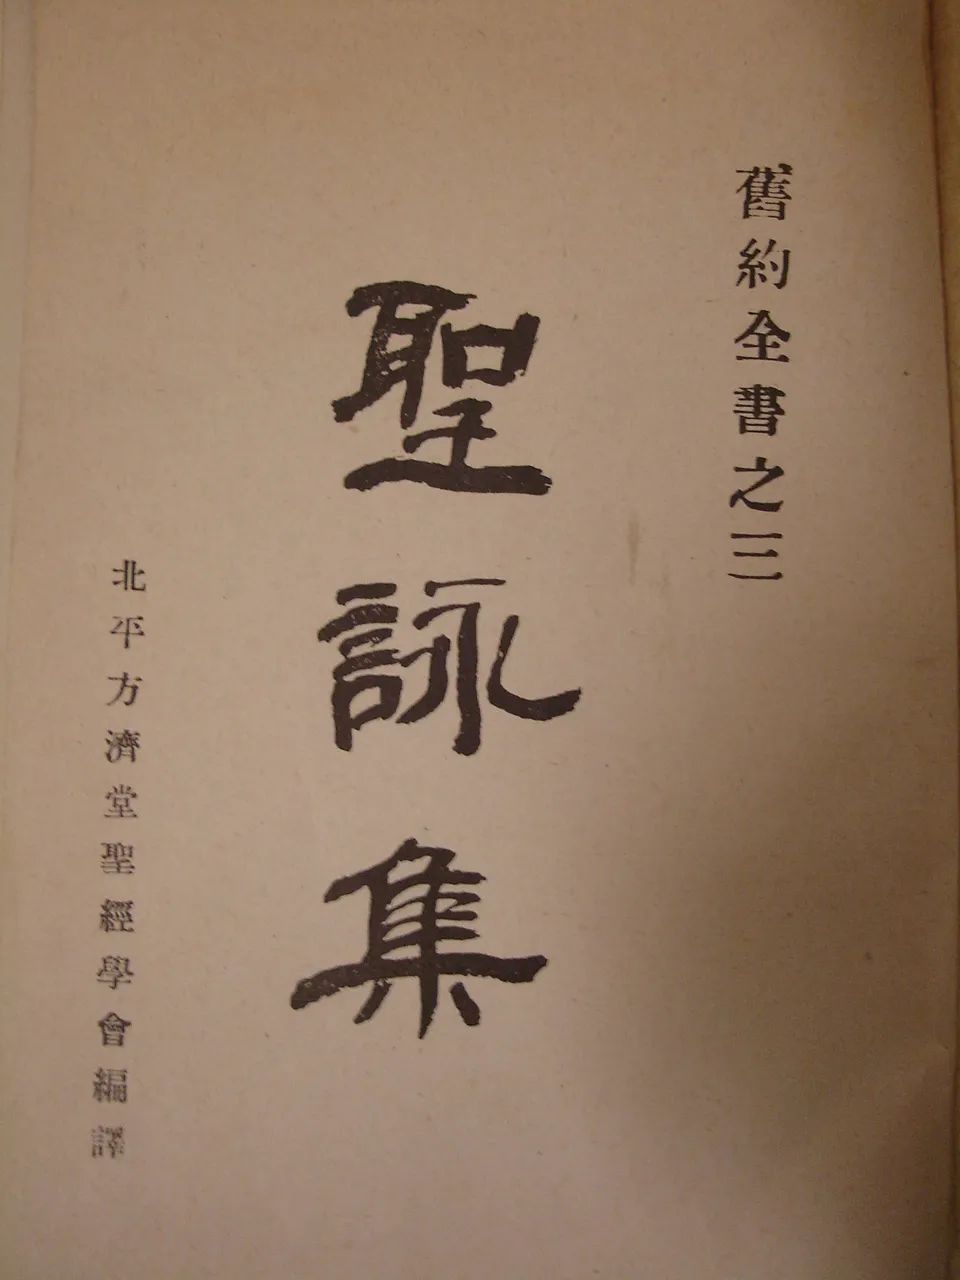 舊約全書之三
聖詠集
北平方濟堂聖經學會編譯